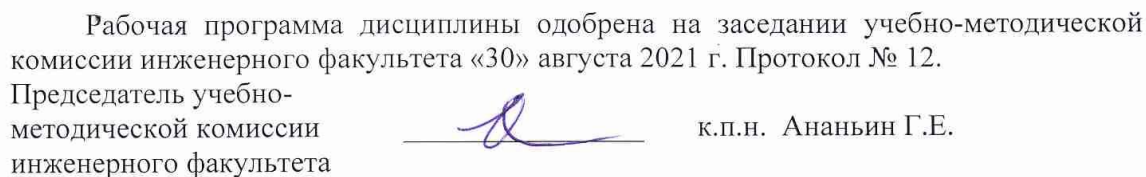 Рабочая программа дисциплины одобрена на заседании учебно-методической
комиссии инженерного факультета «30» августа 2021 г. Протокол № 12.
Председатель учебно-
методической комиссии к.п.н. Ананьин Г.Е.
инженерного факультета